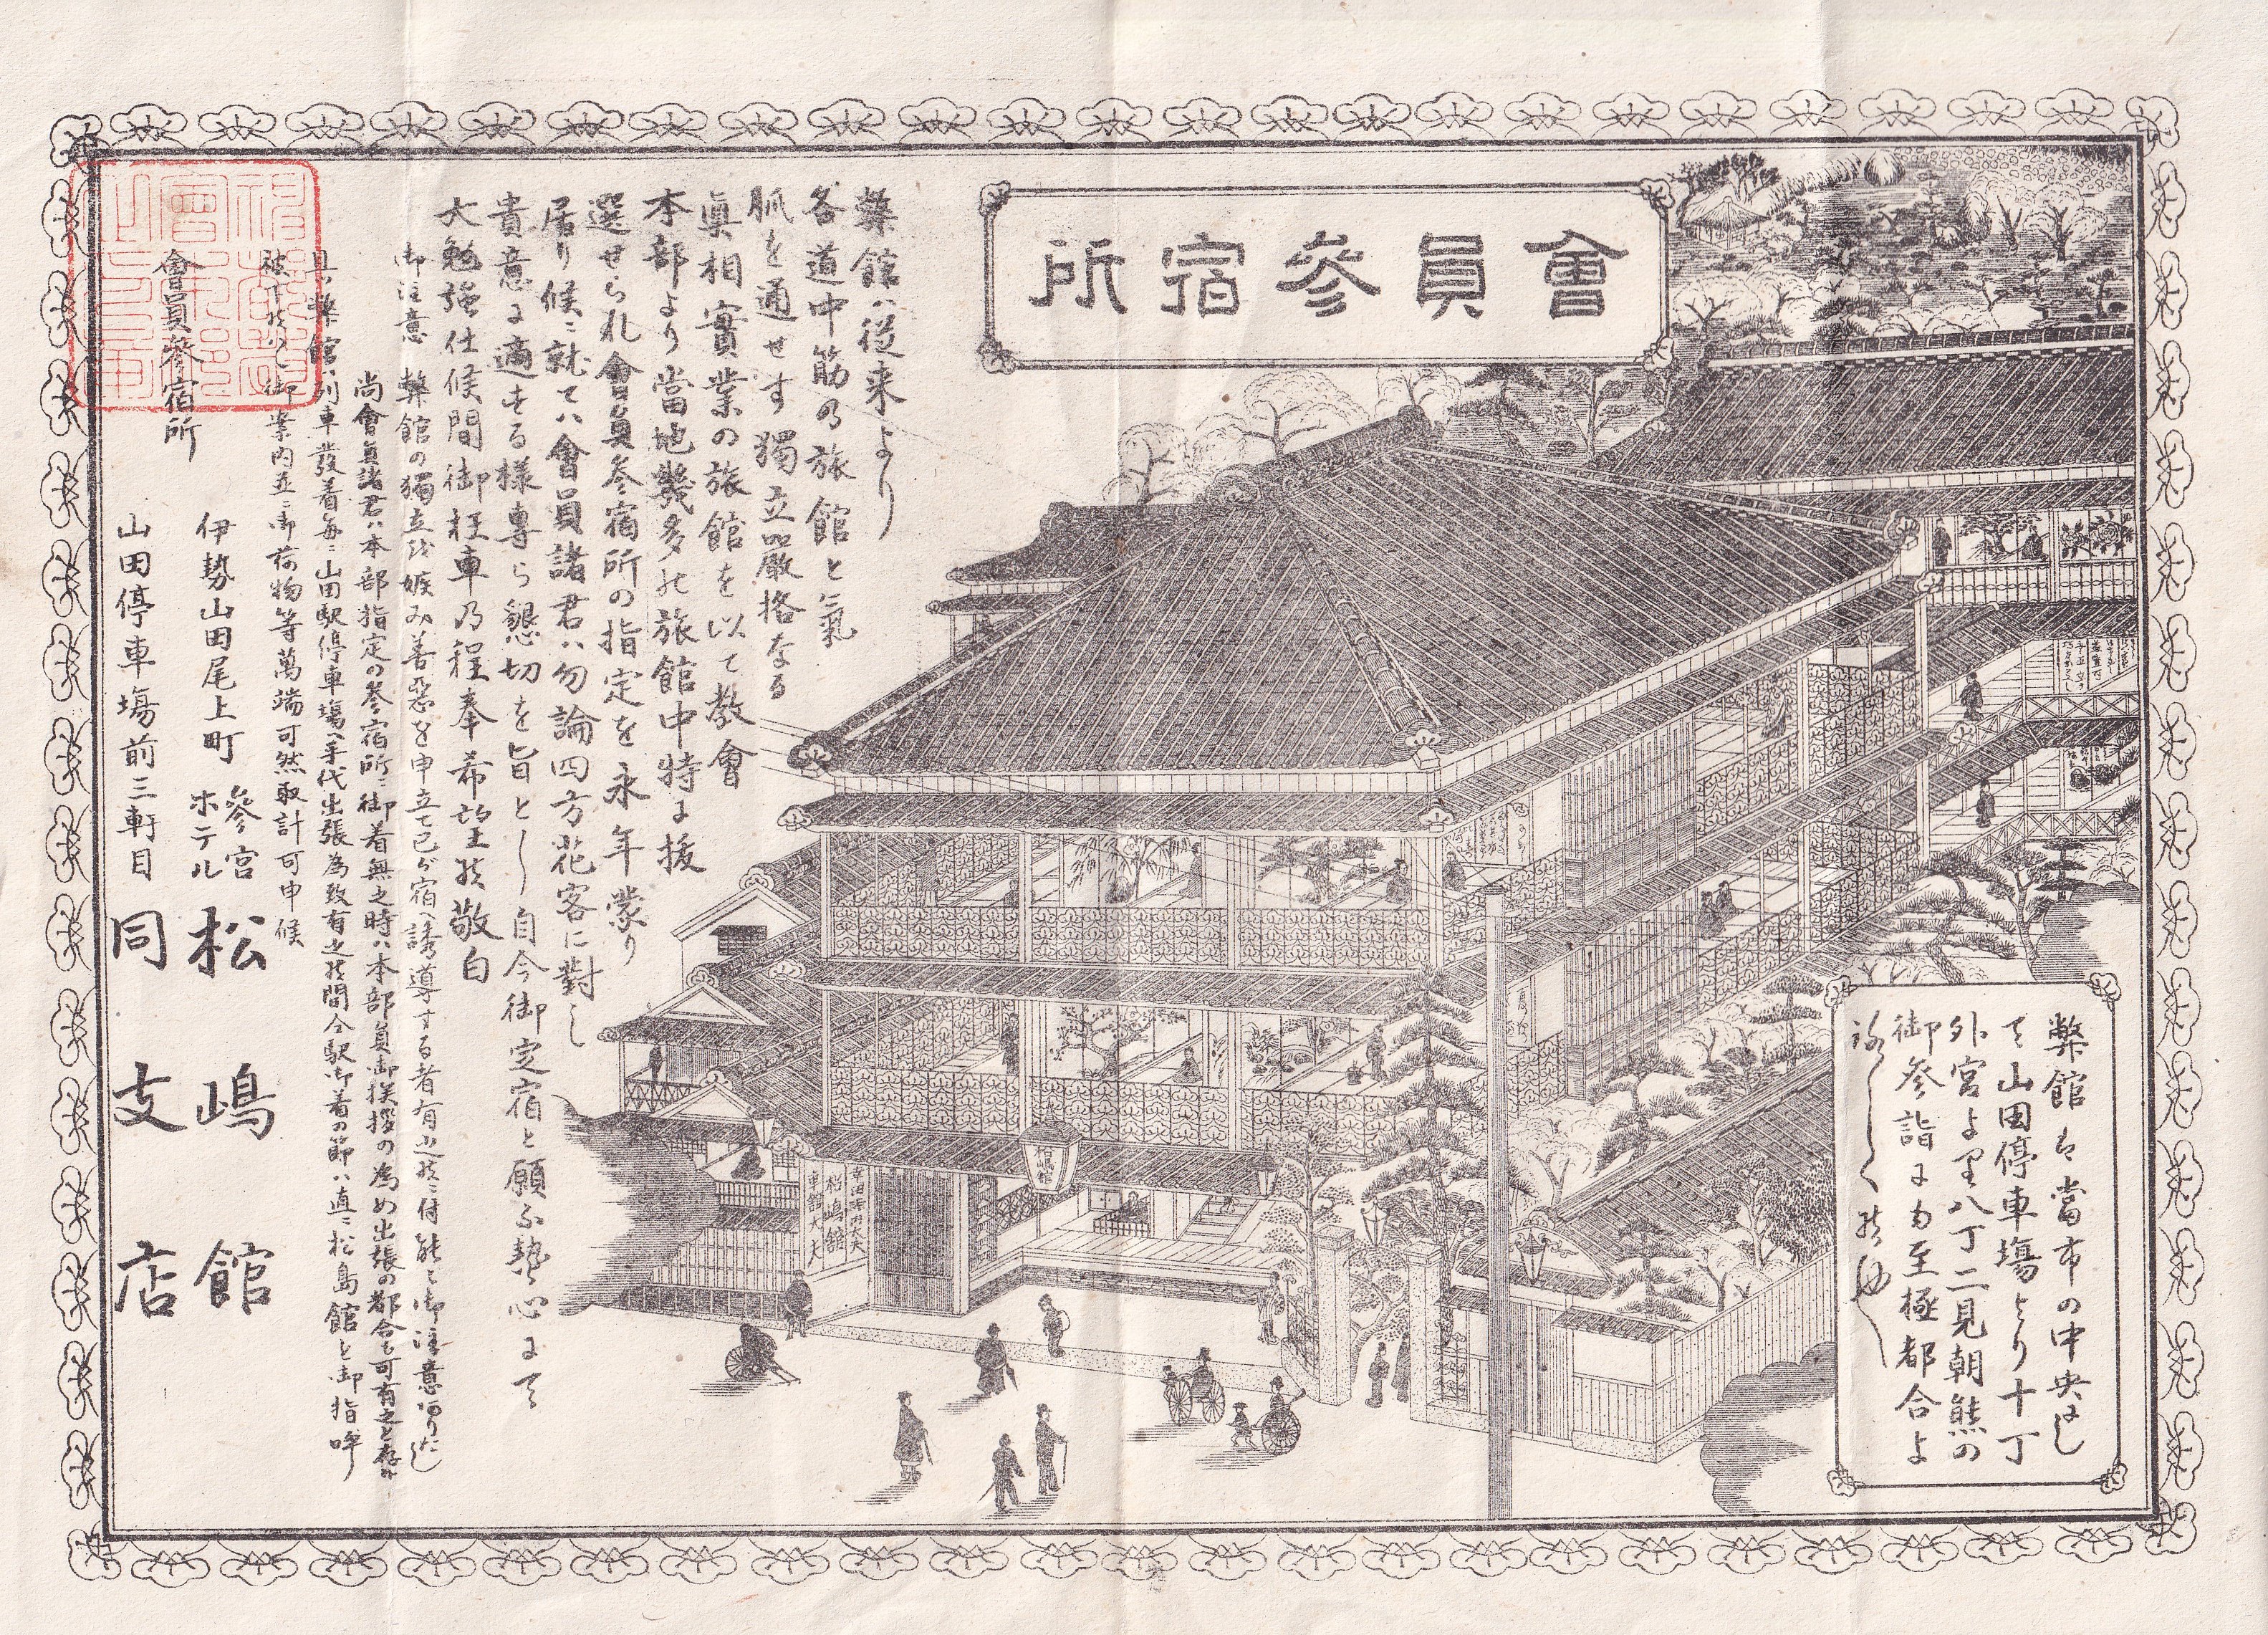 會員參宿所
弊館ハ從来より
各道中筋の旅館と氣
脈を通せす獨立嚴格なる
眞相實業の旅館を以て教會
本部より當地幾多の旅館中特に拔
選せられ會員參宿所の指定を永年蒙り
居り候ニ就てハ會員諸君ハ勿論四方花客に對し
貴意に適する様専ら懇切を旨とし自今御定宿と願ふ熱心にて
大勉強仕候間御枉車乃程奉希望候敬白
御注意 弊館の獨立を嫉み善惡を申立て己が宿へ誘導する者有之候ニ付能々御注意有りたし
尚會員諸君ハ本部指定の參宿所ニ御着無之時ハ本部員御挨拶の為め出張の都合も可有之と存候
且弊館ハ列車發着毎ニ山田駅停車塲へ手代出張為致有之候間仝駅御着の節ハ直ニ松島館と御指呼
被下候ハヽ御案内並ニ御荷物等萬端可然取計可申候
會員參宿所
伊勢山田尾上町 參宮ホテル 松嶋館
山田停車塲前三軒目 同支店
弊館は當市の中央にし
て山田停車塲より十丁
外宮より八丁二見朝熊の
御參詣にも至極都合よ
松嶋館